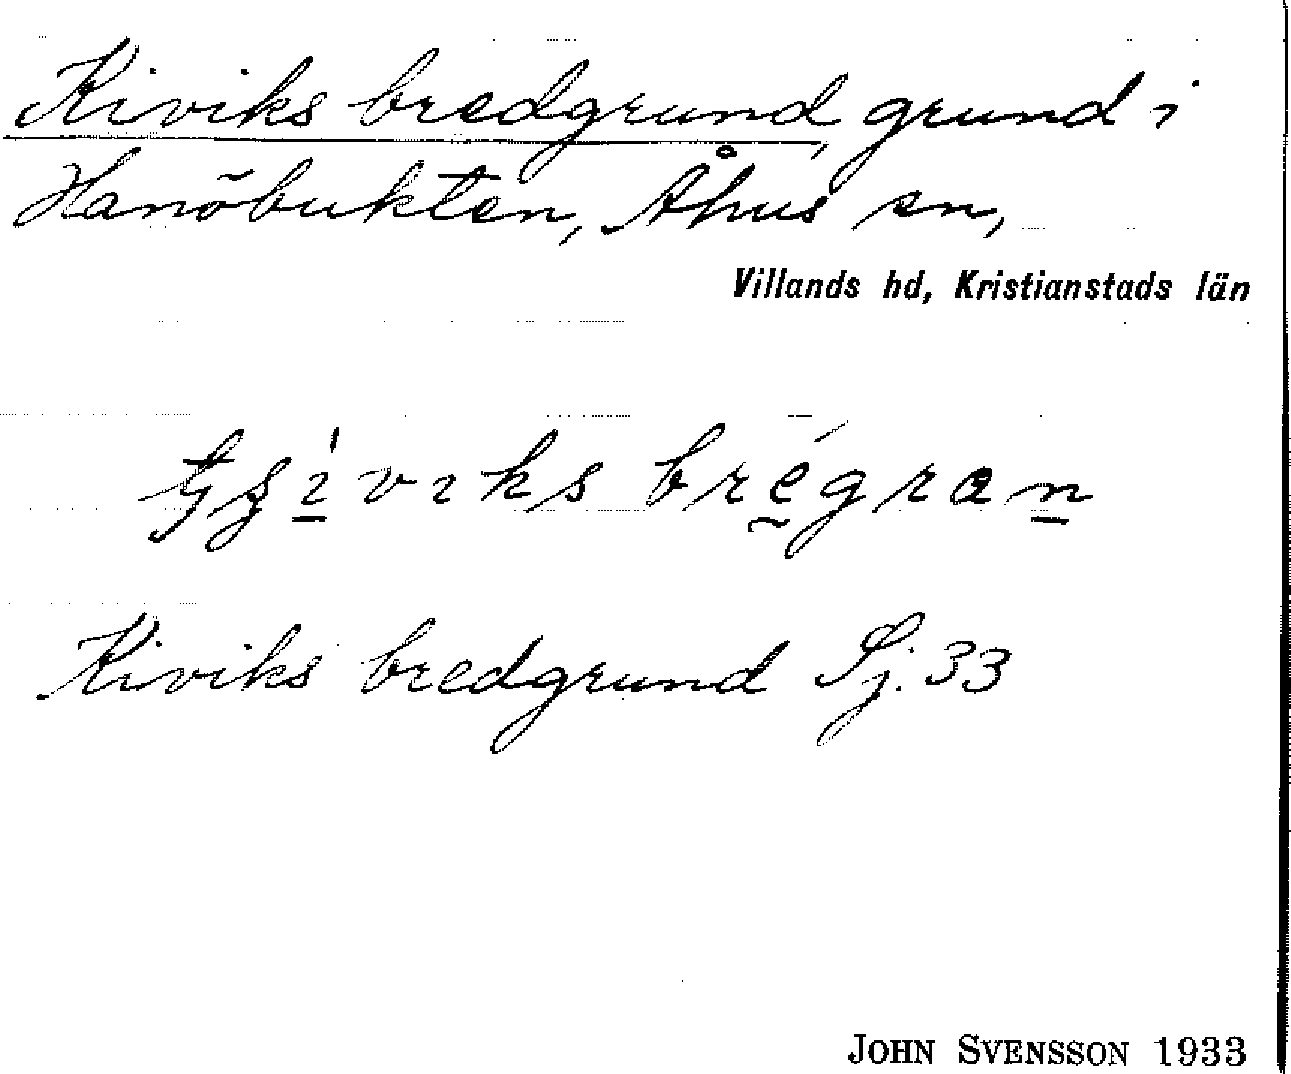 Kiviks bredgrund, grund i
Hanöbukten, Åhus sn,
Villands hd, Kristianstads län
bregran
Kiviks bredgrund Sj. 33
JOHN SVENSSON 1933